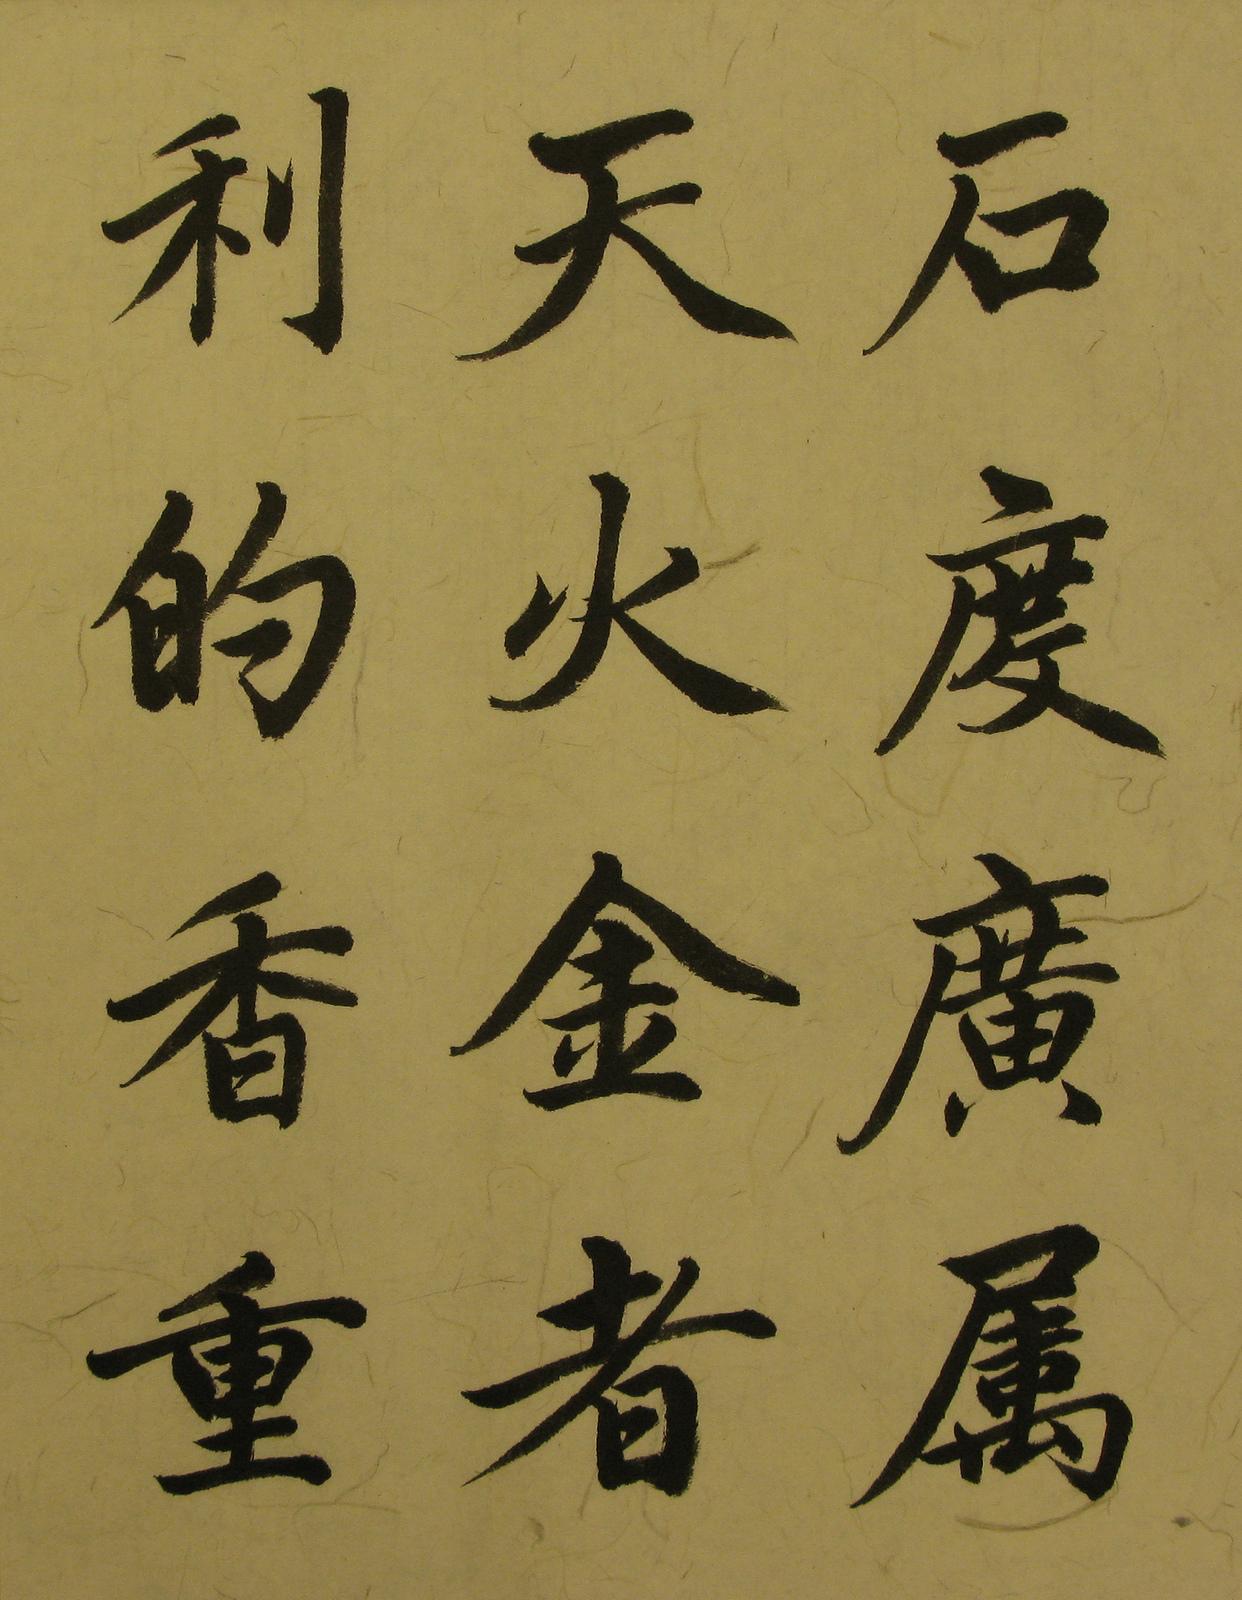 石度廣属
天火金者
利的香重